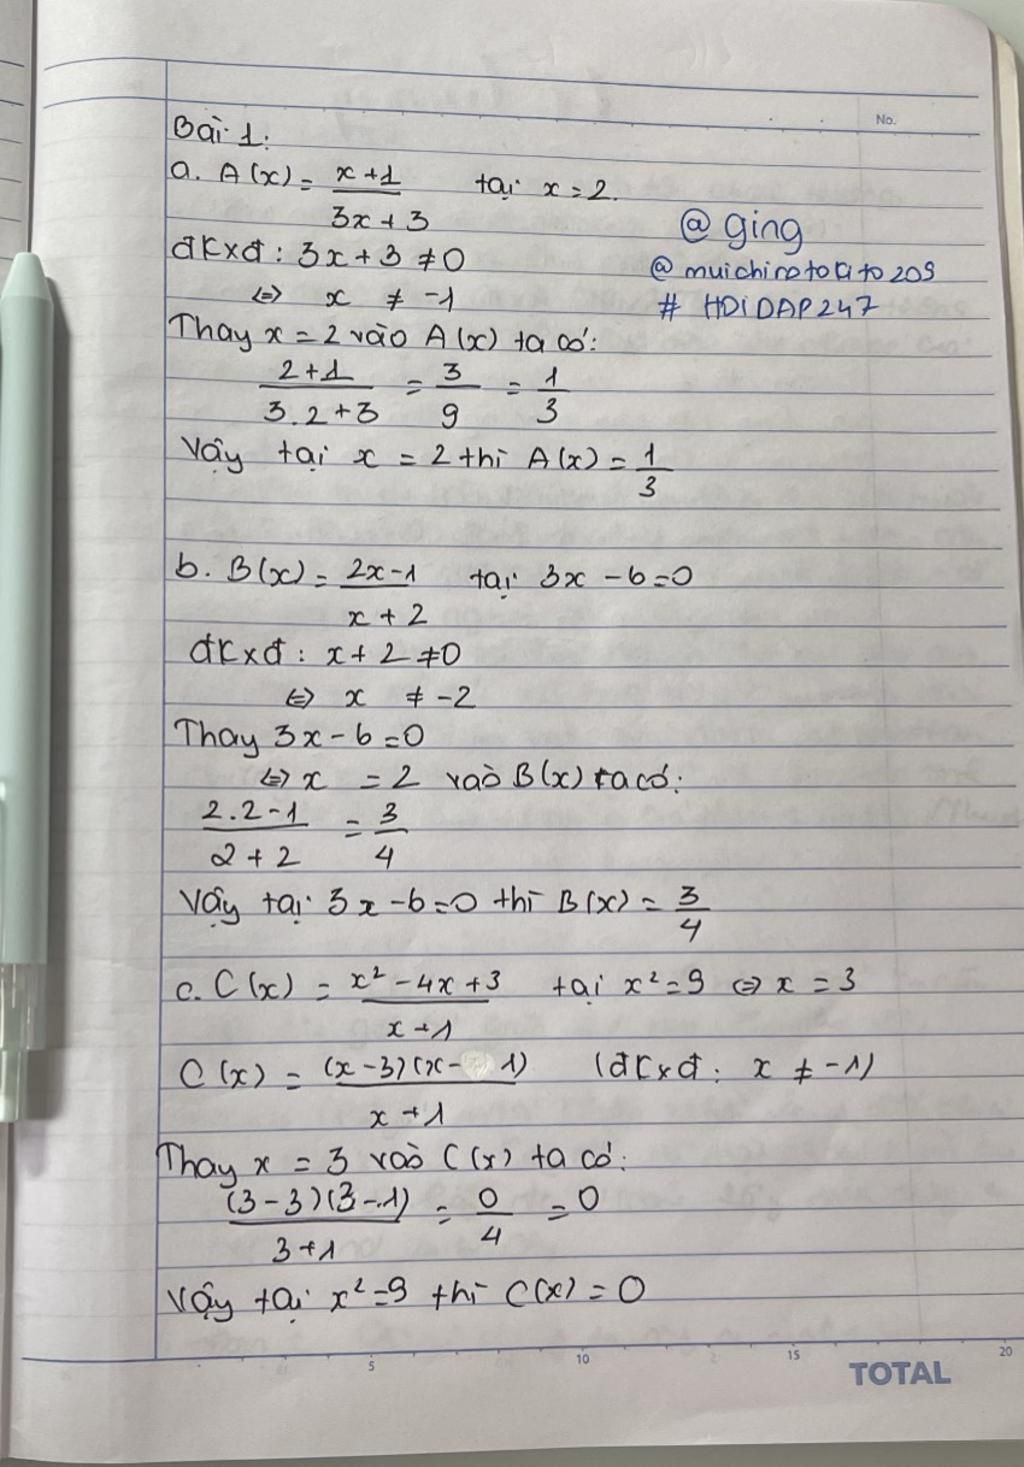 No.
Bài 1:
a. A(x) = x+1 / 3x+3 tại x=2.
@ ging
đkxđ: 3x+3 ≠ 0
@muichirotokito209
⇔ x ≠ -1
# HOIDAP247
Thay x=2 vào A(x) ta có:
2+1 / 3.2+3 = 3/9 = 1/3
Vậy tại x = 2 thì A(x) = 1/3
b. B(x) = 2x-1 / x+2 tại 3x-6=0
đkxđ: x+2 ≠ 0
⇔ x ≠ -2
Thay 3x-6=0
⇔ x = 2 vào B(x) ta có:
2.2-1 / 2+2 = 3/4
Vậy tại 3x-6=0 thì B(x) = 3/4
c. C(x) = x²-4x+3 / x+1 tại x²=9 ⇔ x = 3
C(x) = (x-3)(x-1) / x+1 (đkxđ: x ≠ -1)
Thay x = 3 vào C(x) ta có:
(3-3)(3-1) / 3+1 = 0/4 = 0
Vậy tại x²=9 thì C(x) = 0
5 10 15 20
TOTAL